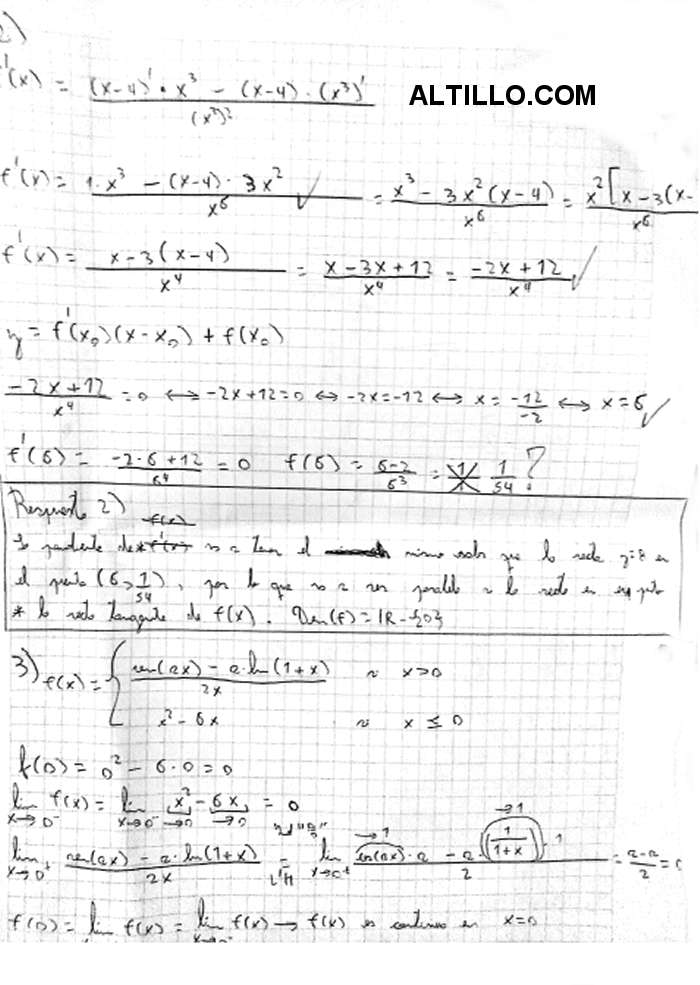 2)
f'(x) = (x-4)'·x³ - (x-4)·(x³)' / (x³)²
ALTILLO.COM
f'(x) = 1·x³ - (x-4)·3x² / x⁶ ✓ = x³ - 3x²(x-4) / x⁶ = x²[x-3(x- / x⁶
f'(x) = x-3(x-4) / x⁴ = x-3x+12 / x⁴ = -2x+12 / x⁴ ✓
y = f'(x₀)(x-x₀) + f(x₀)
-2x+12 / x⁴ = 0 ↔ -2x+12=0 ↔ -2x=-12 ↔ x = -12/-2 ↔ x=6 ✓
f'(6) = -2·6+12 / 6⁴ = 0 f(6) = 6-2 / 6³ = 1/54 ?
Respuesta 2)
f(x)
la pendiente de *f'(x) va a tener el mismo valor que la recta y=8 en
el punto (6, 1/54), por lo que va a ser paralela a la recta en ese pto
* la recta tangente de f(x). Dom(f) = ℝ-{0}
3) f(x) = { sen(ax) - a·ln(1+x) / 2x si x>0
x² - 6x si x ≤ 0
f(0) = 0² - 6·0 = 0
lim x→0⁻ f(x) = lim x→0⁻ x² →0 - 6x →0 = 0
lim x→0⁺ sen(ax) - a·ln(1+x) / 2x = L'H lim x→0⁺ cos(ax)·a - a·(1/1+x)·1 / 2 = a-a / 2 = 0
f(0) = lim f(x) = lim x→0⁻ f(x) → f(x) es continua en x=0